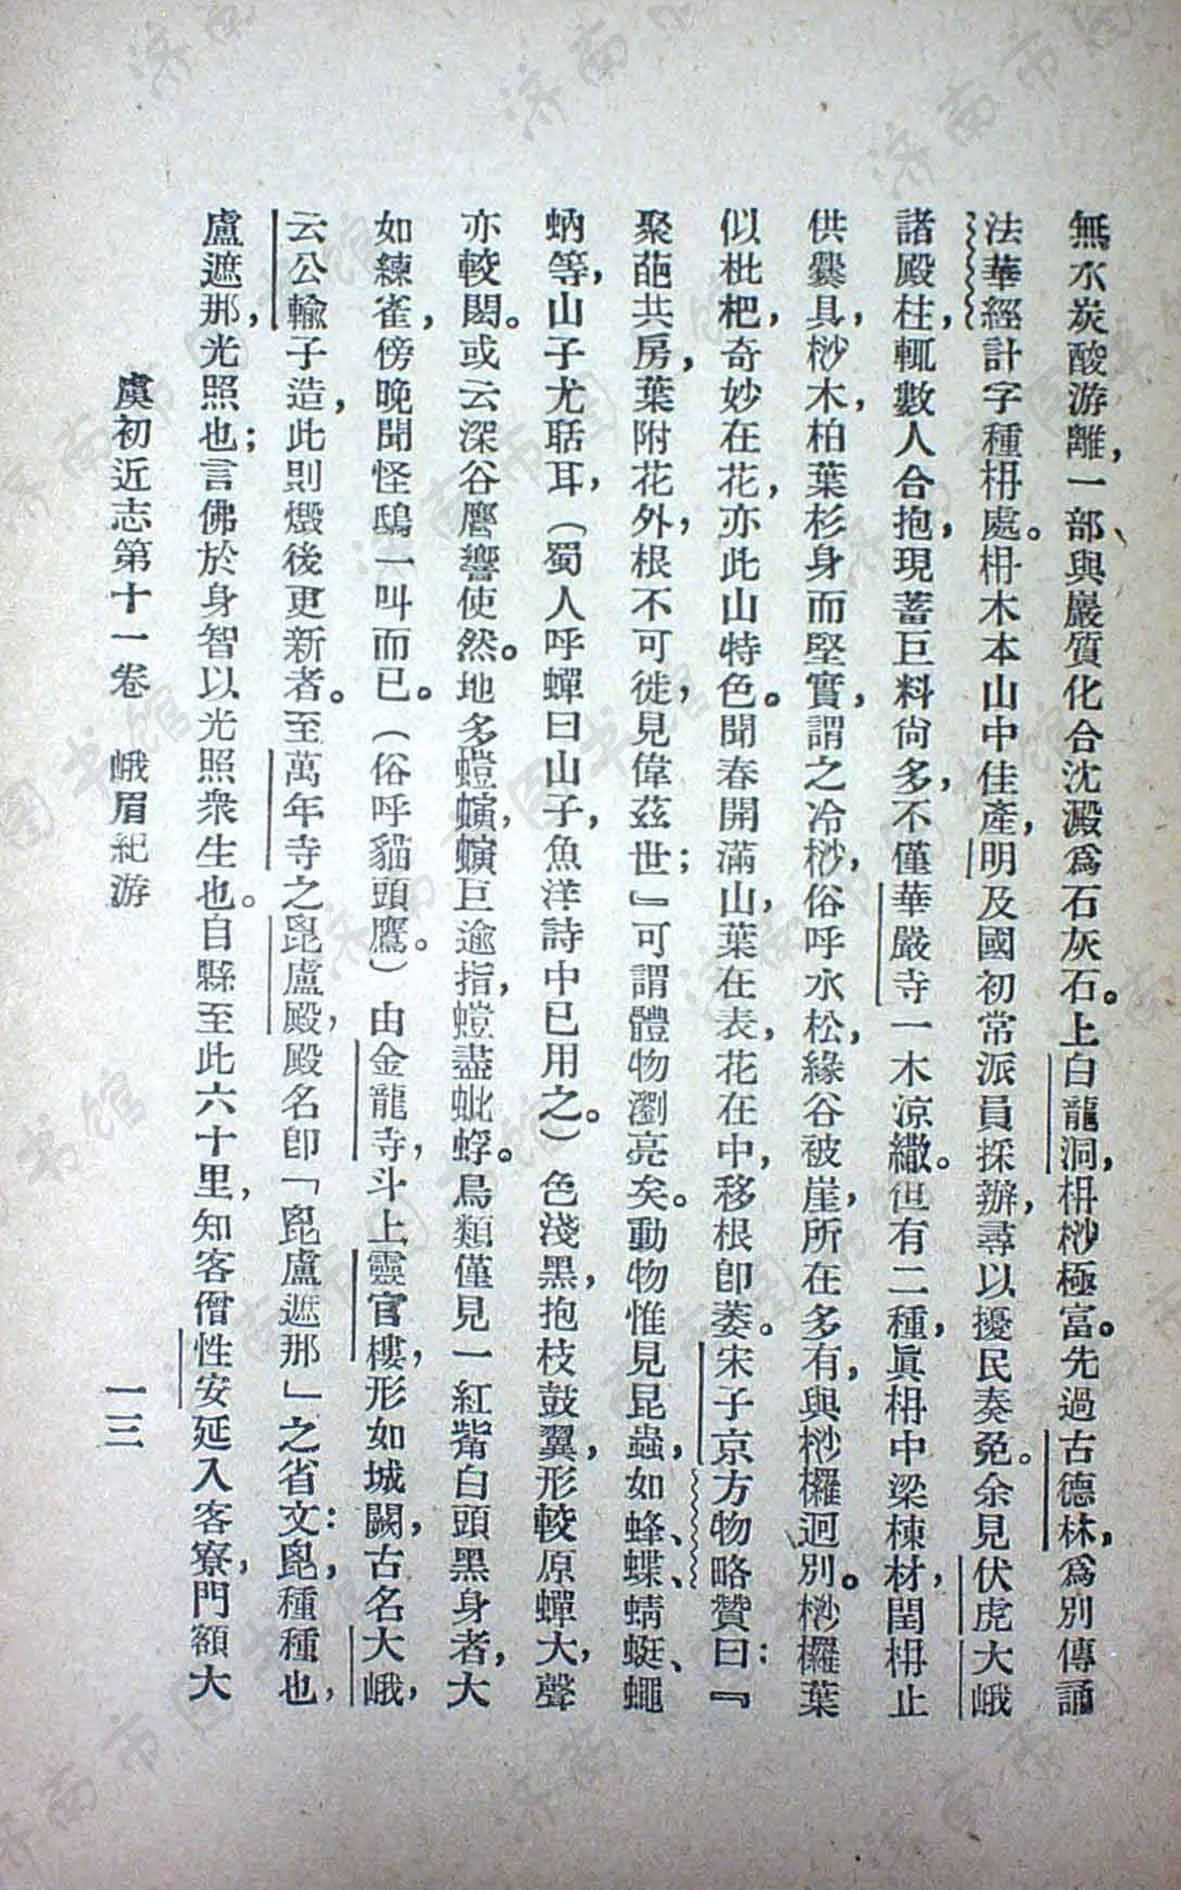 無水炭酸游離，一部與巖質化合沈澱爲石灰石。上白龍洞，枏桫極富。先過古德林，爲別傳誦
法華經計字種枏處。枏木本山中佳產，明及國初常派員採辦，尋以擾民奏免。余見伏虎大峨
諸殿柱，輒數人合抱，現蓄巨料尙多，不僅華嚴寺一木涼繖。但有二種，眞枏中梁棟材，閏枏止
供爨具，桫木，柏葉杉身而堅實，謂之冷桫，俗呼水松，緣谷被崖，所在多有，與桫欏迥別。桫欏葉
似枇杷，奇妙在花，亦此山特色。聞春開滿山，葉在表，花在中，移根卽萎。宋子京方物略贊曰：『
聚葩共房，葉附花外，根不可徙，見偉茲世；』可謂體物瀏亮矣。動物惟見昆蟲，如蜂、蝶、蜻蜓、蠅
蚋等，山子尤聒耳，（蜀人呼蟬曰山子，魚洋詩中已用之。）色淺黑，抱枝鼓翼，形較原蟬大，聲
亦較閎。或云深谷譍響使然。地多螘螾，螾巨逾指，螘盡蚍蜉。鳥類僅見一紅觜白頭黑身者，大
如練雀，傍晚聞怪鴟一叫而已。（俗呼貓頭鷹。）由金龍寺，斗上靈官樓，形如城闕，古名大峨，
云公輸子造，此則燬後更新者。至萬年寺之毘盧殿，殿名卽「毘盧遮那」之省文：毘，種種也，
盧遮那，光照也；言佛於身智以光照衆生也。自縣至此六十里，知客僧性安延入客寮，門額大
虞初近志第十一卷　峨眉紀游
一三